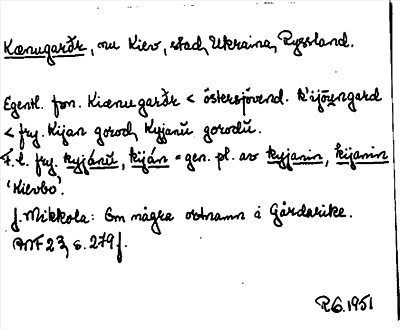 Kænugarðr, nu Kiev, stad, Ukraina, Ryssland.
Egentl. fsn. Kiænugarðr < östersjövend.
< fry. Kijan gorod, Kyjanŭ gorodŭ.
F. l. fry. kyjánŭ, kiján = gen. pl. av kyjanin, kijanin
'Kievbo'.
J. Mikkola: Om några ortnamn i Gårdarike.
ANF 23, s. 279 f.
RG. 1951